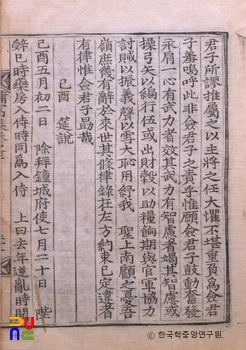 君子所謬推屬之以主將之任大懼不堪重負爲僉君
子羞嗚呼此非僉君子之責乎惟願僉君子鼓動奮發
永肩一心有武力者效其武力有智慮者竭其智慮或
操弓矢以編行伍或出財穀以助糧餉期與官軍協力
討賊以振義聲以雪大恥用紓我 聖上南顧之憂吾
嶺庶幾有辭於來世其條律錄在左方約束已定違者
有律惟僉君子勗哉
己酉 筵說
己酉五月初二日 除拜鍾城府使七月二十日 陛
辭巳時藥房入侍時同爲入侍 上曰去年逆亂時聞
한국학중앙연구원